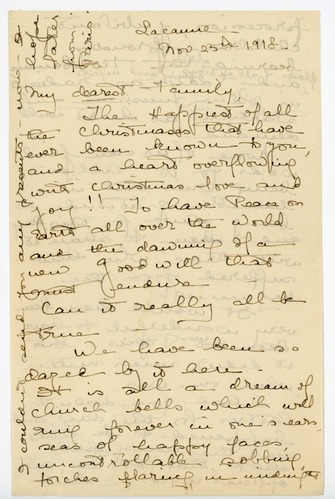 Lacanne
Nov 25th 1918.
My dearest Family,
The Happiest of all
the Christmases that have
ever been known to you,
and a heart overflowing
with Christmas love and
joy!! To have Peace on
earth all over the world
and the dawning of a
new Good will that
must endure —
Can it really all be
true —
We have been so
dazed by it here.
It is all a dream of
church bells which will
ring forever in one's ears
seas of happy faces,
uncontrollable sobbing
torches flaring in midnight
I couldn't send you any presents — more I
hope
later
from
Paris